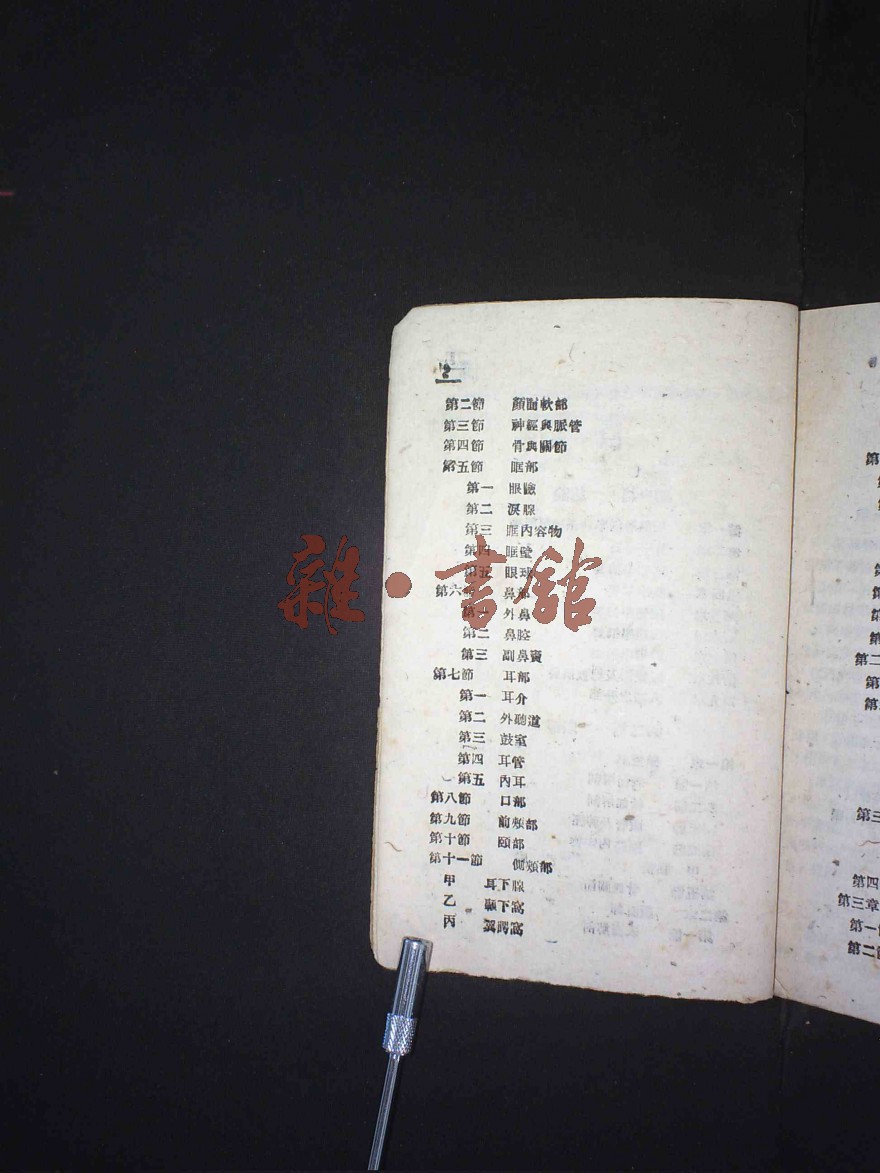 2
第二節 顏面軟部
第三節 神經與脈管
第四節 骨與關節
第五節 眶部
第一 眼瞼
第二 淚腺
第三 眶內容物
第四 眶壁
第五 眼球
第六節 鼻部
第一 外鼻
第二 鼻腔
第三 副鼻竇
第七節 耳部
第一 耳介
第二 外聽道
第三 鼓室
第四 耳管
第五 內耳
第八節 口部
第九節 前頰部
第十節 頤部
第十一節 側頰部
甲 耳下腺
乙 顳下窩
丙 翼腭窩
雜·書館
第二
第三
第四
第三章
第一
第二節